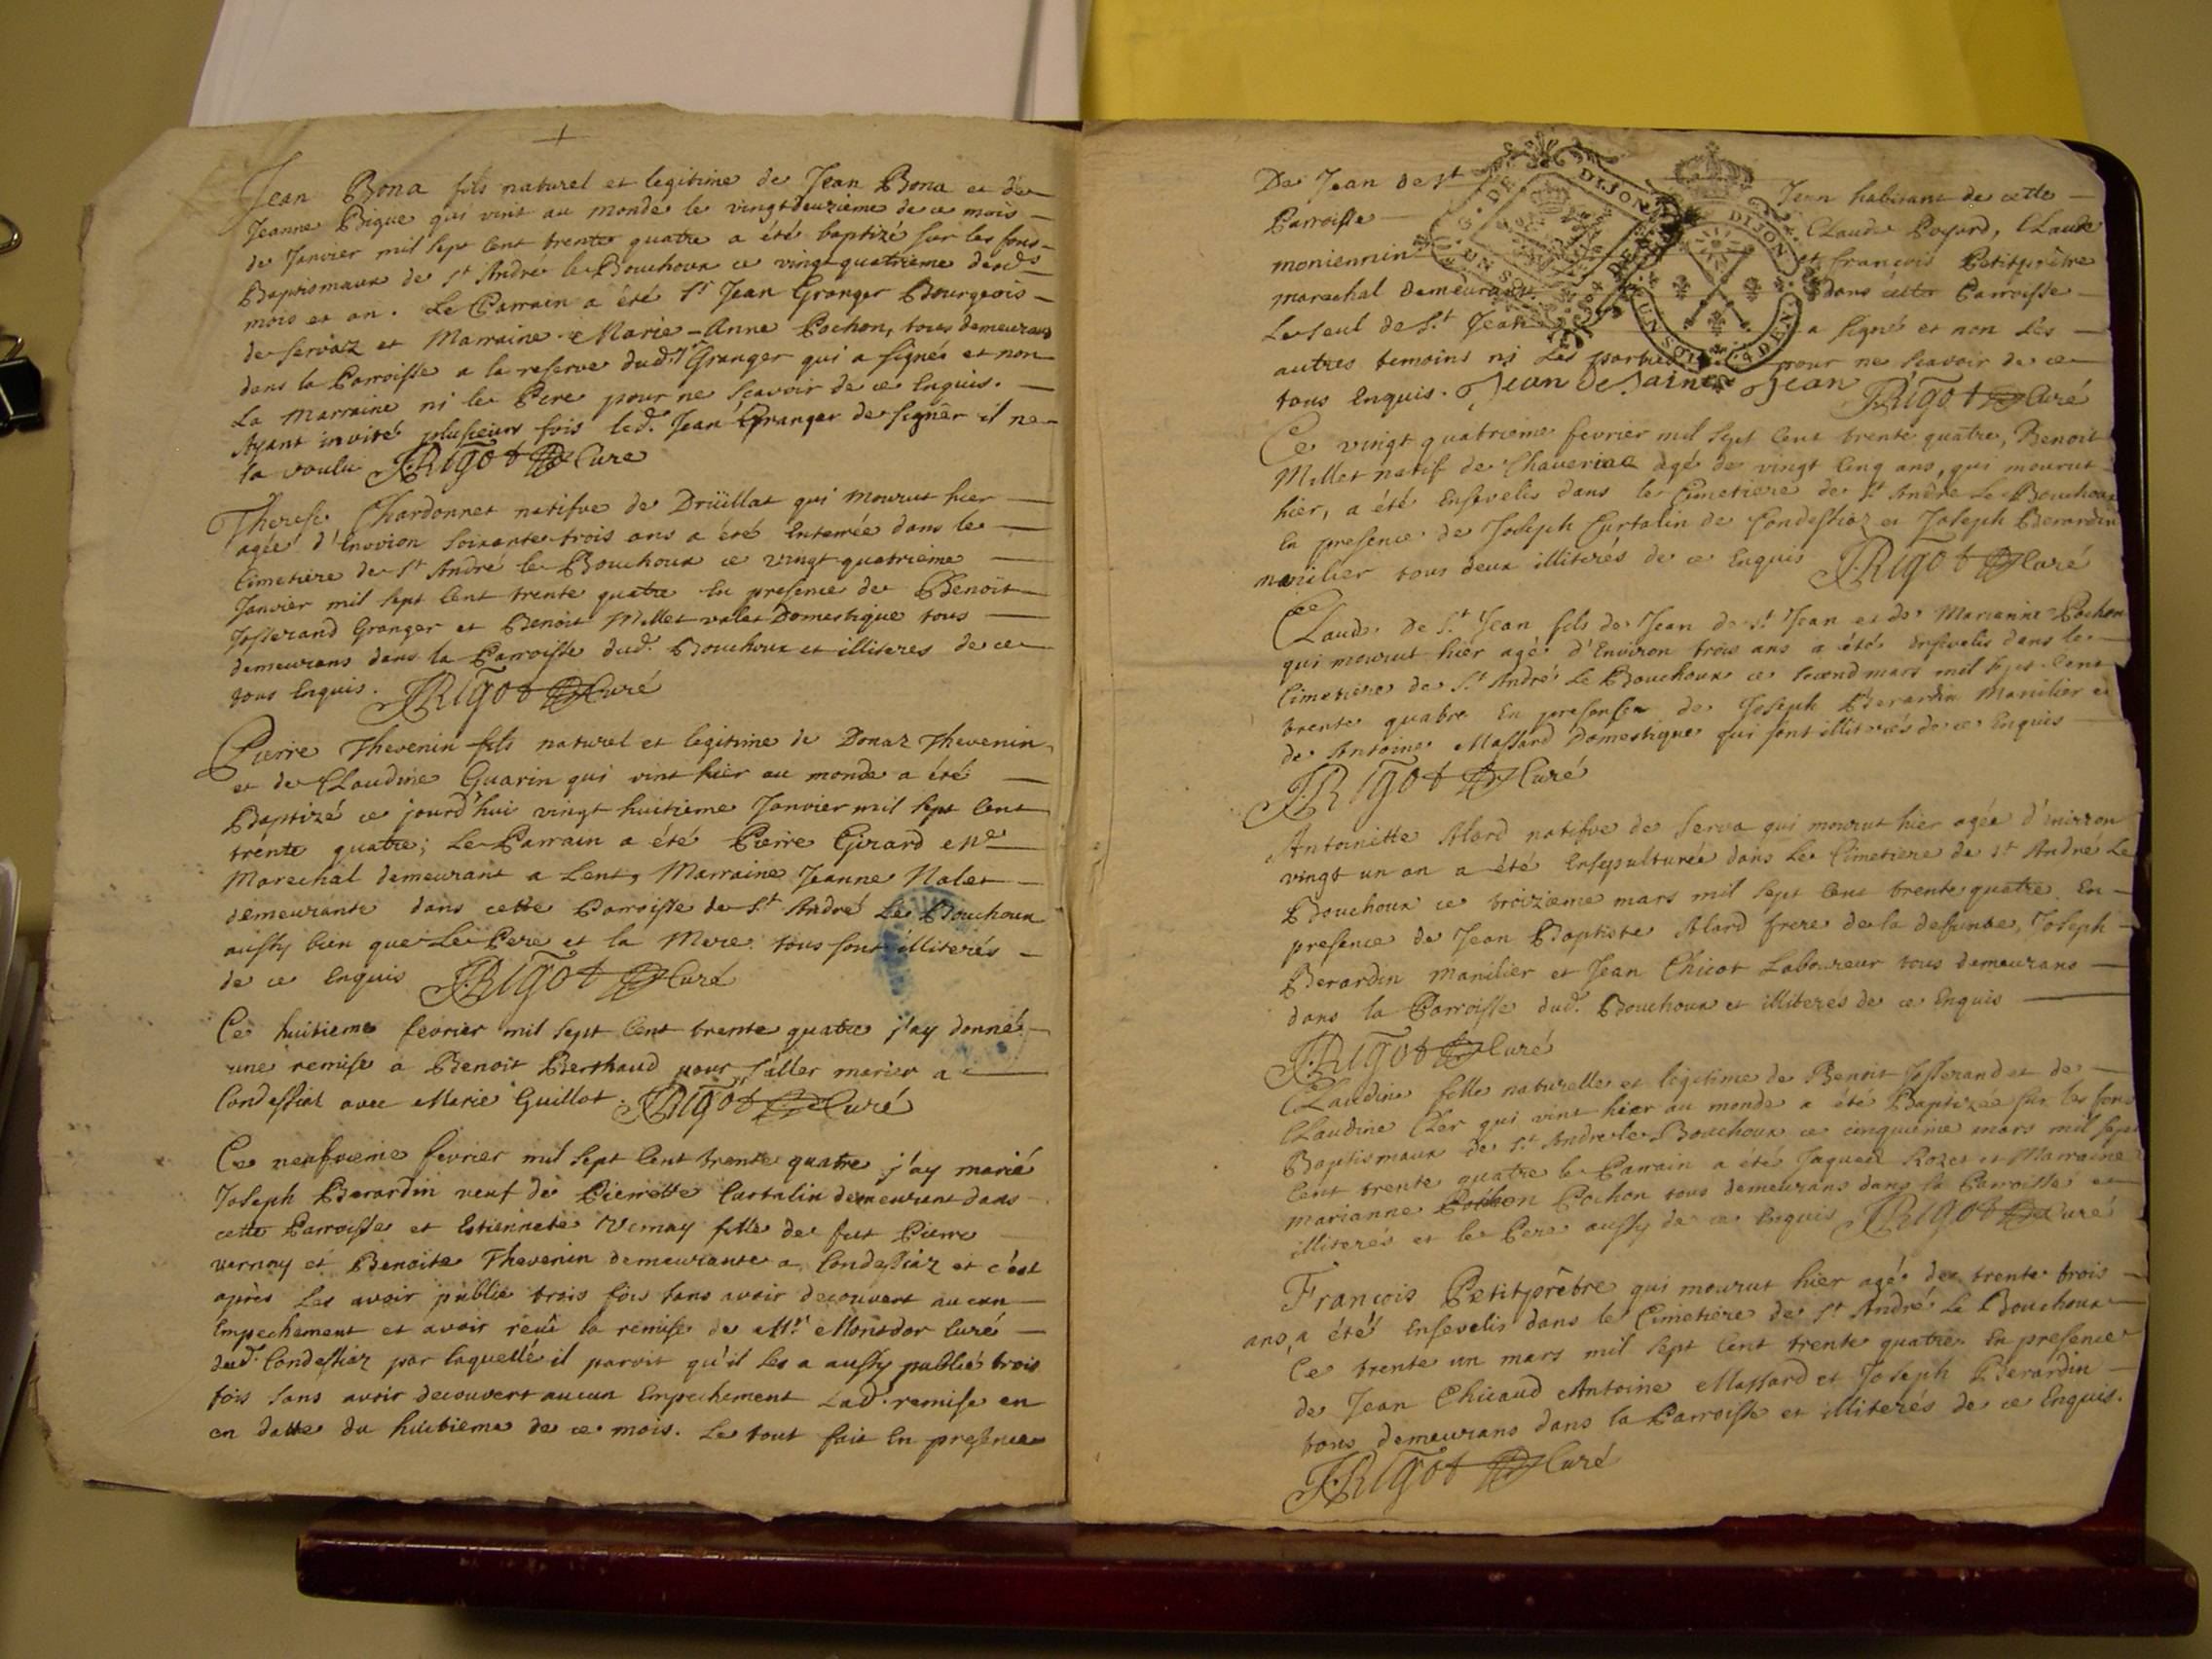 Jean Bona fils naturel et legitime de Jean Bona et de
Jeanne Pique qui vint au monde le vingtdeuzieme de ce mois
de Janvier mil sept cent trente quatre a été baptizé sur les fons
Baptismaux de st André le Bouchoux ce vingt quatrieme desd.
mois et an. Le Parrain a été sr Jean Granger Bourgeois
de servaz et Marraine Marie-Anne Pochon, tous demeurans
dans la Parroisse a la reserve dud. sr Granger qui a signés et non
La Marraine ni le Pere pour ne scavoir de ce Enquis.
Ayant invité plusieurs fois led. Jean Granger de signér il ne
la voulu JRigot Curé
Therese Chardonnet natifve de Drüillat qui mourut hier
agée d'Environ soixante trois ans a été Enterrée dans le
Cimetiere de st André le Bouchoux ce vingt quatrieme
Janvier mil sept cent trente quatre En presence de Benoit
Josserand Granger et Benoit Millet valet Domestique tous
demeurans dans la Parroisse dud. Bouchoux et illiteres de ce
tous Enquis. JRigot Curé
Pierre Thevenin fils naturel et legitime de Donaz Thevenin
et de CLaudine Guarin qui vint hier au monde a été
Baptizé ce jourd'hui vingt huitieme Janvier mil sept Cent
trente quatre; Le Parrain a été Pierre Girard
Marechal demeurant a Lent, Marraine Jeanne Nalet
demeurante dans cette Parroisse de St André Le Bouchoux
aussy bien que Le Pere et la Mere tous sont illiterés
de ce Enquis JRigot Curé
Ce huitieme fevrier mil sept Cent trente quatre j'ay donné
une remise a Benoit Berthaud pour s'aller marier a
Condessiat avec Marie Guillot. JRigot Curé
Ce neufvieme fevrier mil sept Cent trente quatre j'ay marié
Joseph Berardin veuf de Pierrette Curtalin demeurant dans
cette Parroisse et Estiennete Vernay fille de fut Pierre
vernay et Benoite Thevenin demeurante a Condessiaz et c'est
après Les avoir publié trois fois sans avoir decouvert aucun
Empechement et avoir reçû la remise de Mr Montdor Curé
dud. Condessiaz par laquelle il paroit qu'il Les a aussy publié trois
fois sans avoir decouvert aucun Empechement Lad. remise en
en datte du huitieme de ce mois. Le tout fait En presence
De Jean de st Jean habitant de cette
Parroisse CLaude Poyard, CLaude
moniennin et françois Petitprêtre
marechal demeurant dans cette Parroisse
Le seul de St Jean a signé et non Les
autres temoins ni Les parties pour ne scavoir de ce
tous Enquis. Jean de Saint Jean JRigot Curé
G. DE DIJON
UN SOL
G. DE DIJON
UN SOL 4 DEN
Ce vingt quatrieme fevrier mil sept Cent trente quatre, Benoit
Millet natif de Chaveriac agé de vingt Cinq ans, qui mourut
hier, a été Ensevelis dans le Cimetiere de st André Le Bouchoux
En presence de Joseph Curtalin de Condessiaz et Joseph Berardin
manilier tous deux illiterés de ce Enquis JRigot Curé
CLaude De St Jean fils de Jean de st Jean et de Marianne Pochon
qui mourut hier agé d'Environ trois ans a été Ensevelis dans le
Cimetiere de St André Le Bouchoux ce second mars mil sept Cent
trente quatre En presence de Joseph Berardin Manilier et
de Antoine Massard Domestique qui sont illiterés de ce Enquis
JRigot Curé
Antoinette Alard natifve de Serva qui mourut hier agée d'environ
vingt un an a été Ensepulturée dans Le Cimetiere de st André Le
Bouchoux ce troizieme mars mil sept Cent trente quatre En
presence de Jean Baptiste Alard frere de la defunte, Joseph
Berardin manilier et Jean Chicot Laboureur tous demeurans
dans la Parroisse dud. Bouchoux et illiterés de ce Enquis
JRigot Curé
CLaudine fille naturelle et legitime de Benoit Josserand et de
CLaudine CLer qui vint hier au monde a été Baptizée sur les fons
Baptismaux de st André le Bouchoux ce cinquieme mars mil sept
Cent trente quatre le Parrain a été Jaques Rozet et Marraine
marianne Pochon Pochon tous demeurans dans la Parroisse et
illiterés et le Pere aussy de ce Enquis JRigot Curé
François Petitprêtre qui mourut hier agé de trente trois
ans, a été Ensevelis dans le Cimetiere de St André Le Bouchoux
Ce trente un mars mil sept Cent trente quatre En presence
de Jean Chicaud Antoine Massard et Joseph Berardin
tous demeurans dans la Parroisse et illiterés de ce Enquis.
JRigot Curé